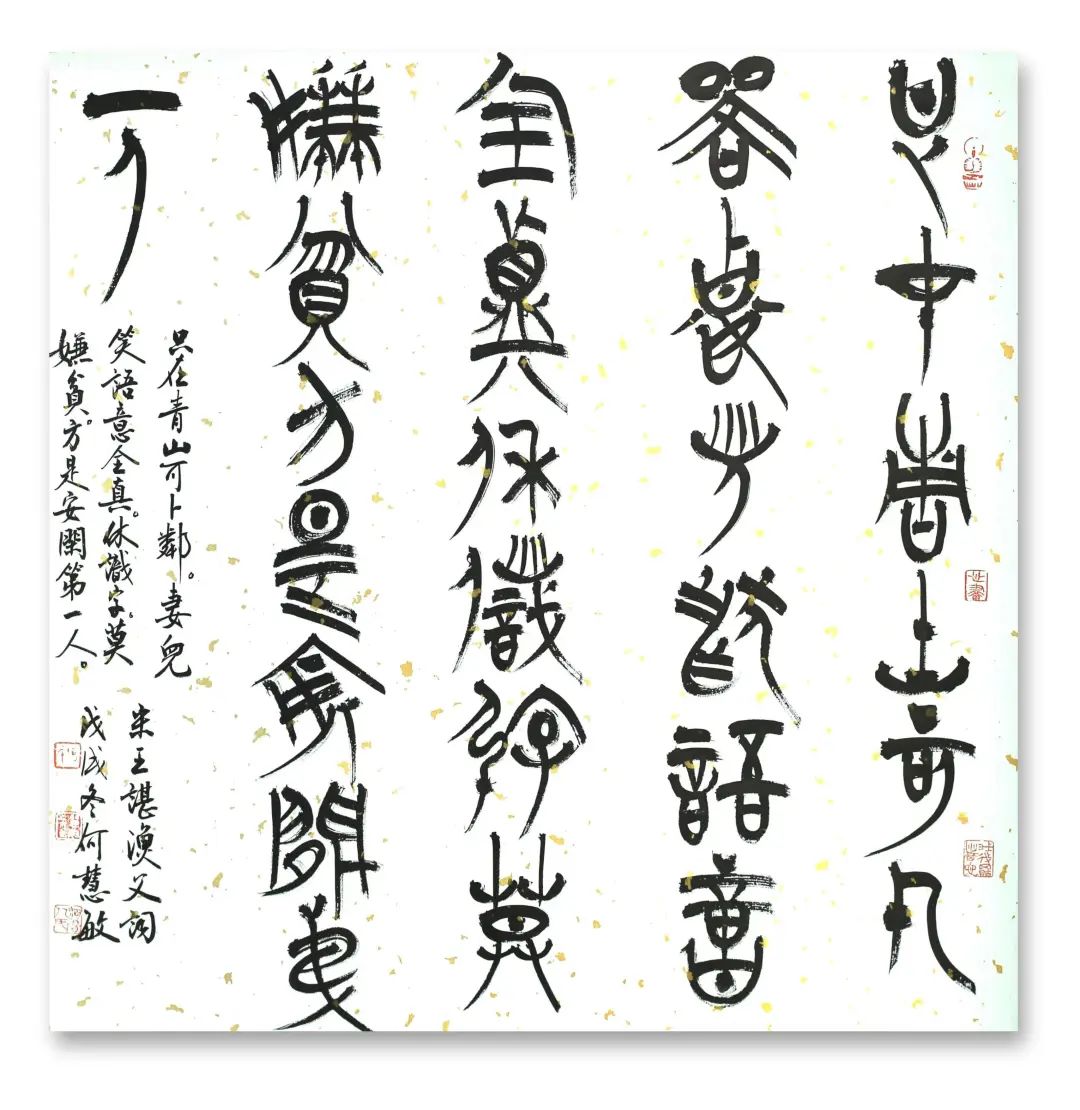 只在青山可卜
鄰妻兒笑語意
全真休識字莫
嫌貧方是安閒第
一人
只在青山可卜鄰。妻兒
笑語意全真。休識字。莫
嫌貧。方是安閑第一人。
宋王諶漁父詞
戊戌冬何慧敏